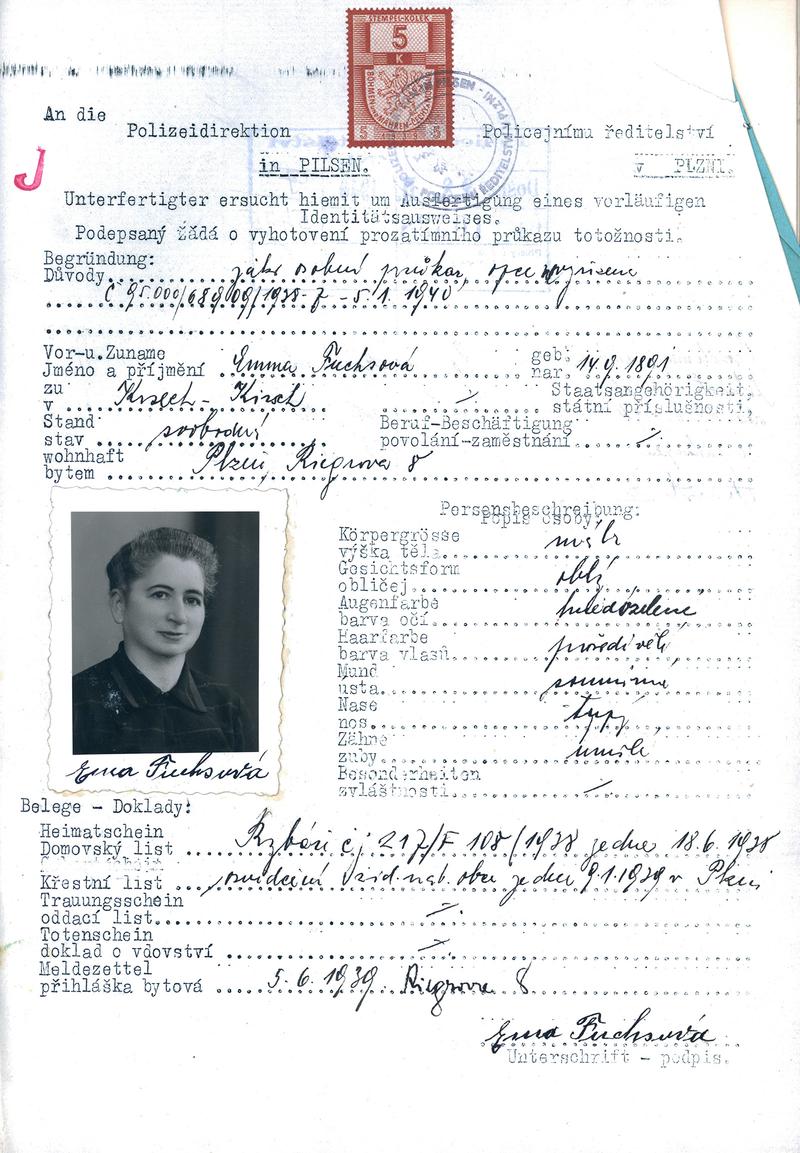 STEMPEL-KOLEK
5
K
BÖHMEN UND MÄHREN
5 5
An die
Polizeidirektion Policejnímu ředitelství
in PILSEN. v PLZNI.
J
Unterfertigter ersucht hiemit um Ausfertigung eines vorläufigen
Identitätsausweises.
Podepsaný žádá o vyhotovení prozatímního průkazu totožnosti.
Begründung:
Důvody jako osobní průkaz,
Č 95.000/68909/1938-7 - 5.1.1940
Vor-u.Zuname geb.
Jméno a příjmení Emma Fuchsová nar. 14.9.1891
zu Staatsangehörigkeit,
v státní příslušnosti,
Stand Beruf-Beschäftigung
stav svobodná povolání-zaměstnání
wohnhaft
bytem Plzeň, Riegrova 8
Persensbeschreibung:
Popis osoby:
Körpergrösse
výška těla
Gesichtsform
obličej oblý
Augenfarbe
barva očí hnědozelené
Haarfarbe
barva vlasů prošedivělé
Mund
ústa souměrná
Nase
nos tupý
Zähne
zuby umělé
Besonderheiten
zvláštnosti
Ema Fuchsová
Belege - Doklady:
Heimatschein
Domovský list čj 217/F 108/1938 ze dne 18.6.1938
Křestní list osvědčení žid. náb. obce ze dne 9.1.1939 v Plzni
Trauungsschein
oddací list
Totenschein
doklad o vdovství
Meldezettel
přihláška bytová 5.6.1939 Riegrova 8
Ema Fuchsová
Unterschrift - podpis.